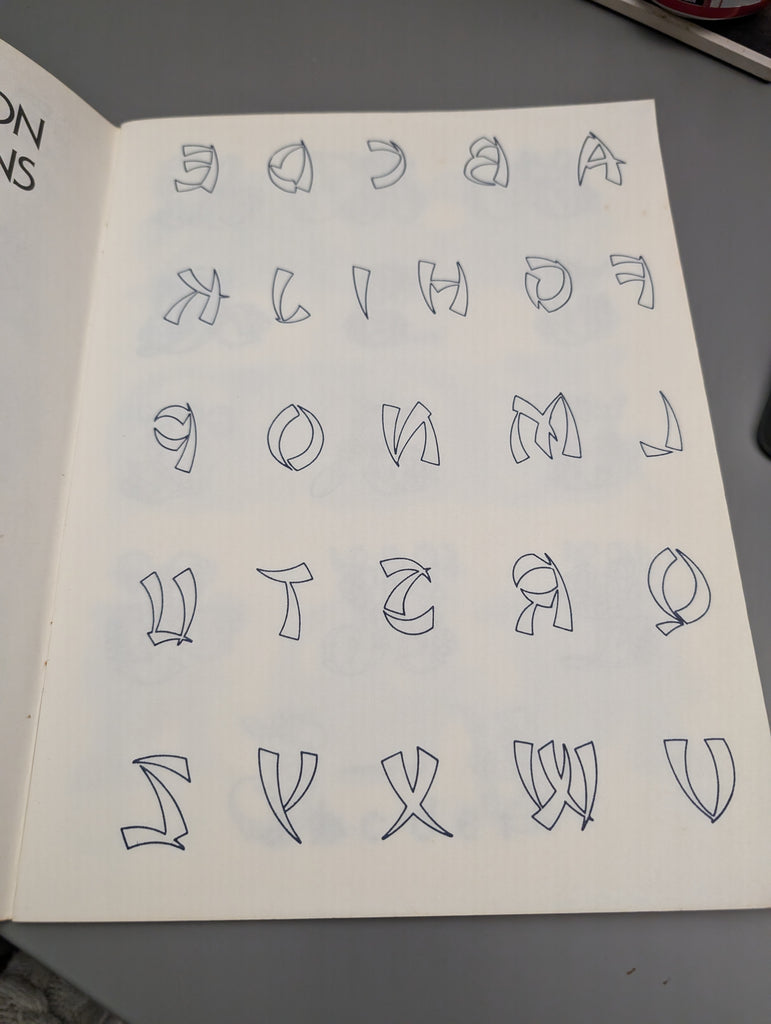 ON
NS
A B C D E
F G H I J K
L M N O P
Q R S T U
V W X Y Z